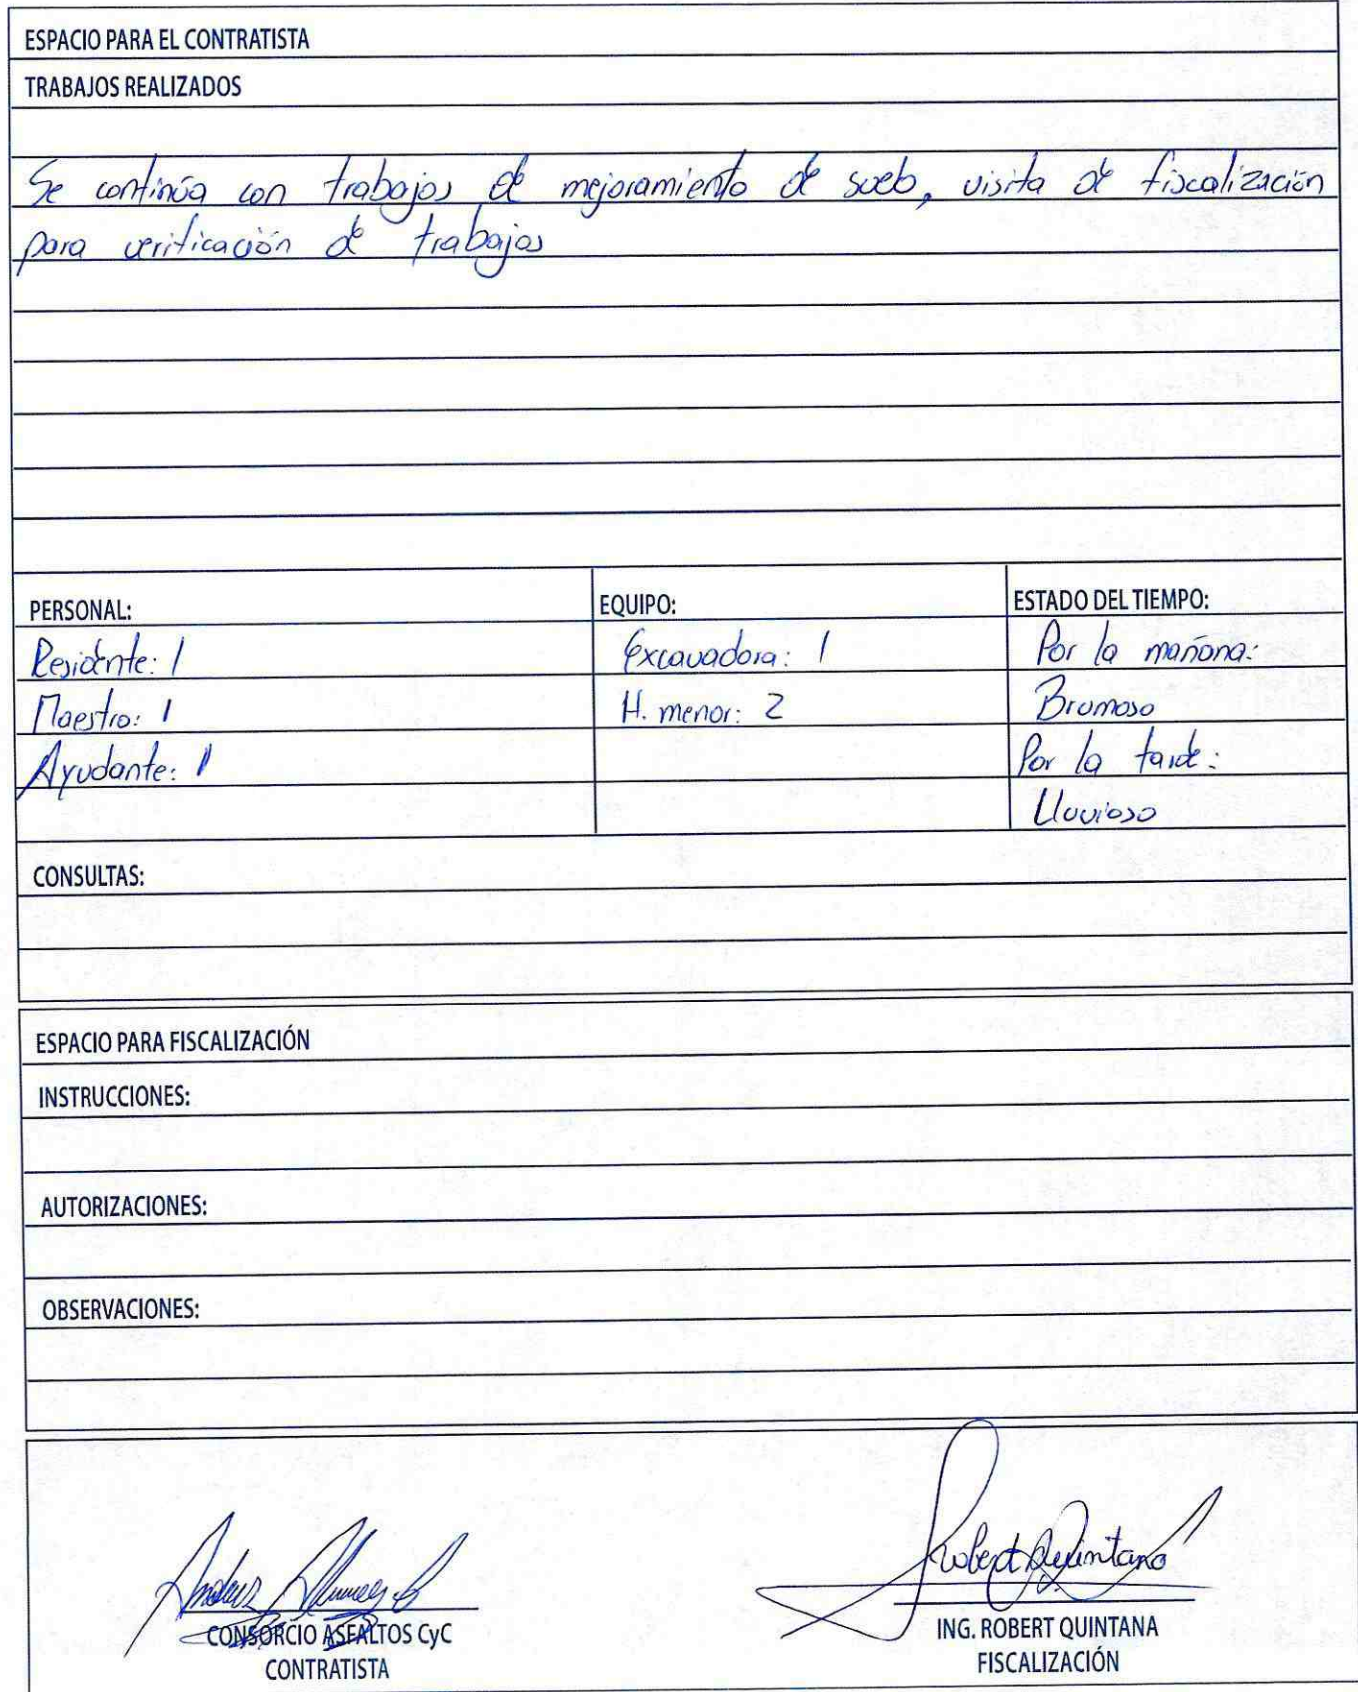 ESPACIO PARA EL CONTRATISTA
TRABAJOS REALIZADOS
Se continúa con trabajos de mejoramiento de suelo, visita de fiscalización
para verificación de trabajos
PERSONAL:
Residente: 1
Maestro: 1
Ayudante: 1
EQUIPO:
Excavadora: 1
H. menor: 2
ESTADO DEL TIEMPO:
Por la mañana:
Brumoso
Por la tarde:
Lluvioso
CONSULTAS:
ESPACIO PARA FISCALIZACIÓN
INSTRUCCIONES:
AUTORIZACIONES:
OBSERVACIONES:
CONSORCIO ASFALTOS CyC
CONTRATISTA
Robert Quintana
ING. ROBERT QUINTANA
FISCALIZACIÓN